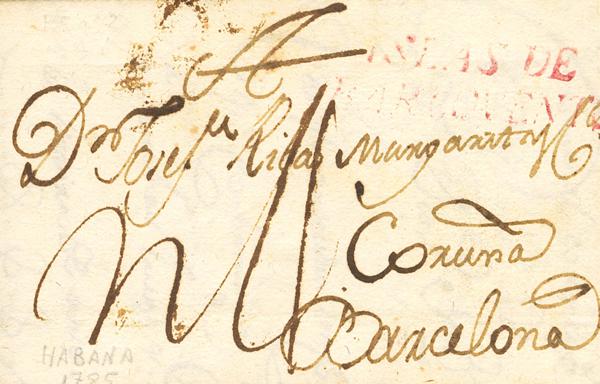 A
ISLAS DE
BARLOVENTO
Dn Joseph Ribas Margarit y Ca
Coruña
Barcelona
HABANA
1785